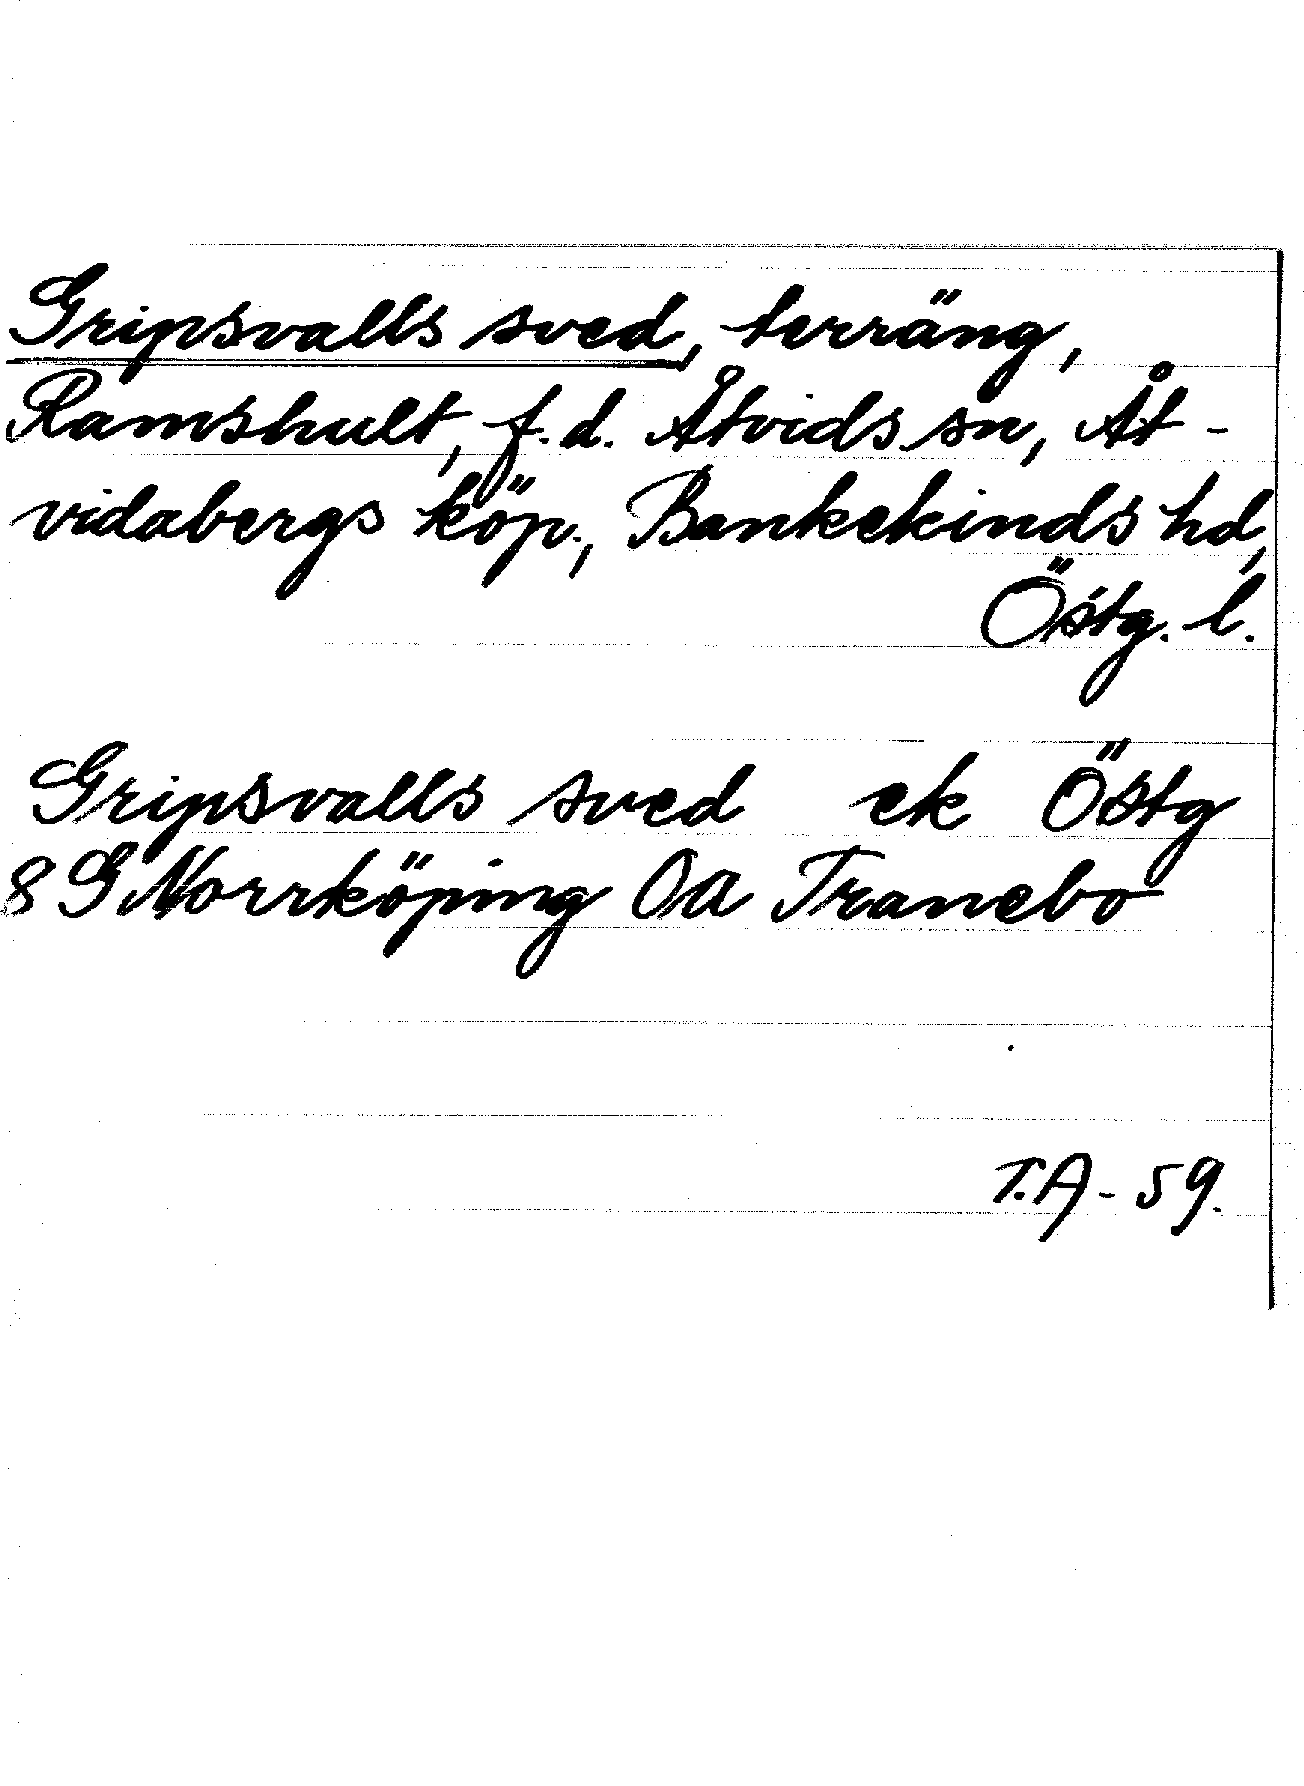 Gripsvalls sved, terräng,
Ramshult, f.d. Åtvids sn, Åt-
vidabergs köp., Bankekinds hd,
Östg. l.
Gripsvalls sved ek Östg
8 G Norrköping Oa Tranebo
T.A - 59.